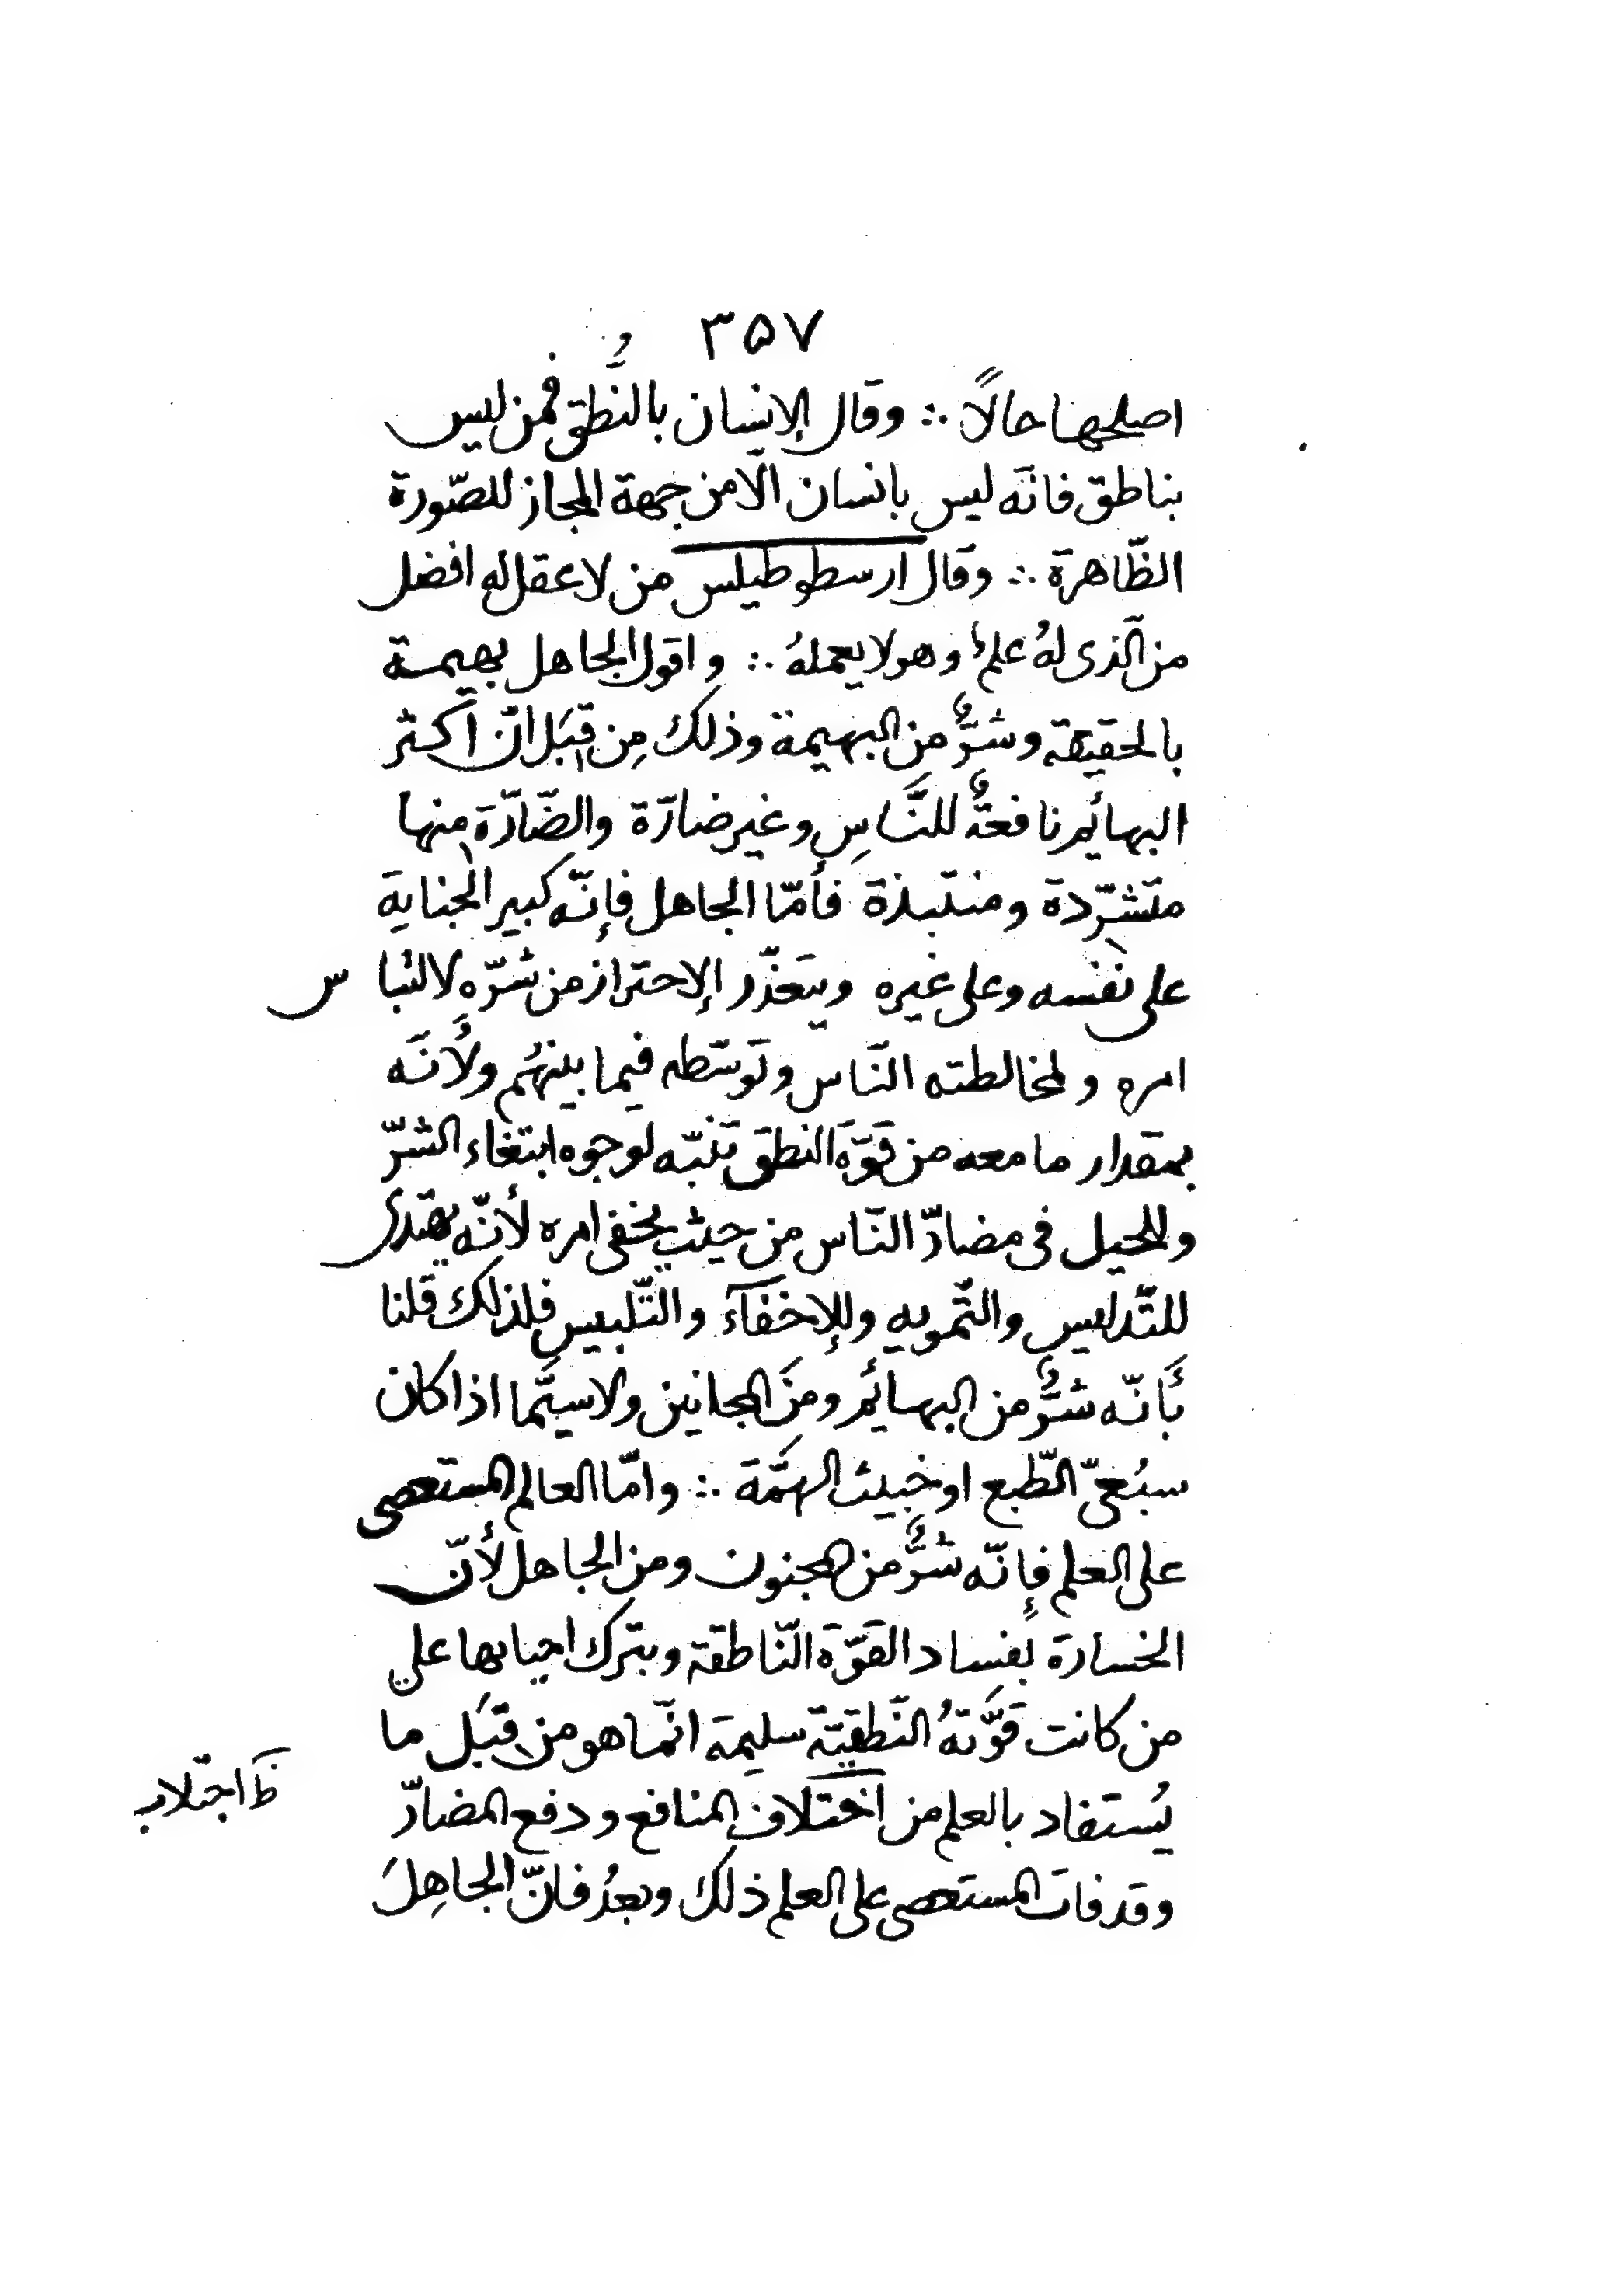 ٣٥٧
اصلحها حالاً ∴ وقال الإنسان بالنُّطق فمن ليس
بناطق فانّه ليس بانسان الّا من جهة المجاز للصّورة
الظّاهرة ∴ وقال ارسطوطيلس من لا عقل له افضل
من الّذى لهُ علمٌ وهو لا يعملهُ ∴ واقول الجاهل بهيمة
بالحقيقة وشرٌّ من البهيمة وذلك مِن قِبَل انّ اكثر
البهائم نافعةٌ للنَّاسِ وغير ضارّة والضّارّة منها
متشرّدة ومنتبذة فأمّا الجاهل فإنّه كبير الجناية
على نفسه وعلى غيره ويتعذّر الإحتراز من شرّه لالتباس
امره ولمخالطته النّاس وتوسّطه فيما بينهُم ولأنّه
بمقدار ما معه من قوّة النطق تنبّه لوجوه ابتغاء الشرّ
وللحيل فى مضادّ النّاس من حيث يخفى امره لأنّه يهتدى
للتّدليس والتّمويه وللإخفآء والتّلبيس فلذلك قلنا
بَأنّه شرٌّ من البهائم ومنَ المجانين ولا سيَّما اذا كان
سبُعىّ الطّبع او خبيث الهمَّة ∴ وامّا العالم المستعصى
على العلم فإنّه شرٌّ من المجنون ومن الجاهل لأنّ
الخسارة بفساد القوّة النّاطقة وبترك احيائها على
من كانت قوّتهُ النّطقيّة سليمة انّما هو من قِبَل ما
يُستفاد بالعلم من اختلاف المنافع ودفع المضارّ
ظ اجتلاب
وقد فات المستعصى على العلم ذلك وبعدُ فانّ الجاهِلَ